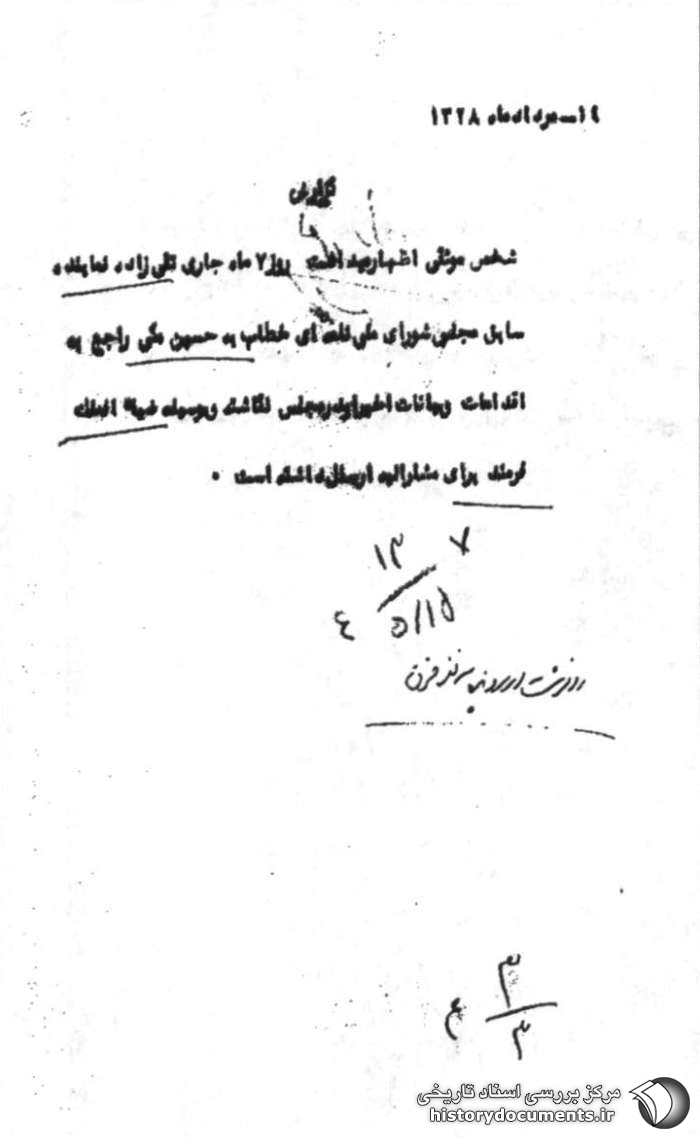 ۱٤ـمرداد ماه ۱۳۲۸
گزارش
شخص موثقی اظهار میداشت روز ۷ ماه جاری تقی زاده نماینده
سابق مجلس شورای ملی نامه ای خطاب به حسین مکی راجع به
اقدامات و بیانات اخیر او در مجلس نگاشته و بوسیله ضیاء الملک
فرمند برای مشارالیه ارسال داشته است .
۱۳ ۷
٤ ۵/۱۵
رونوشت در پرونده
۳
۳ ع
مرکز بررسی اسناد تاریخی
historydocuments.ir